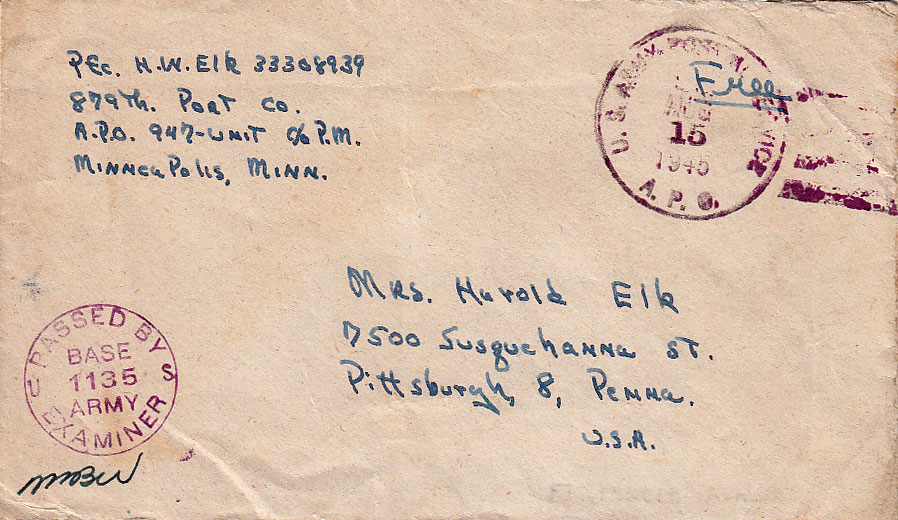 Pfc. H.W. Elk 33308939
879th. Port Co.
A.P.O. 947-Unit c/o P.M.
Minneapolis, Minn.
U. S. ARMY. POSTAL SERVICE
Free
AUG
15
1945
A. P. O.
Mrs. Harold Elk
7500 Susquehanna St.
Pittsburgh, 8, Penna.
U.S.A.
PASSED BY
BASE
U 1135 S
ARMY
EXAMINER